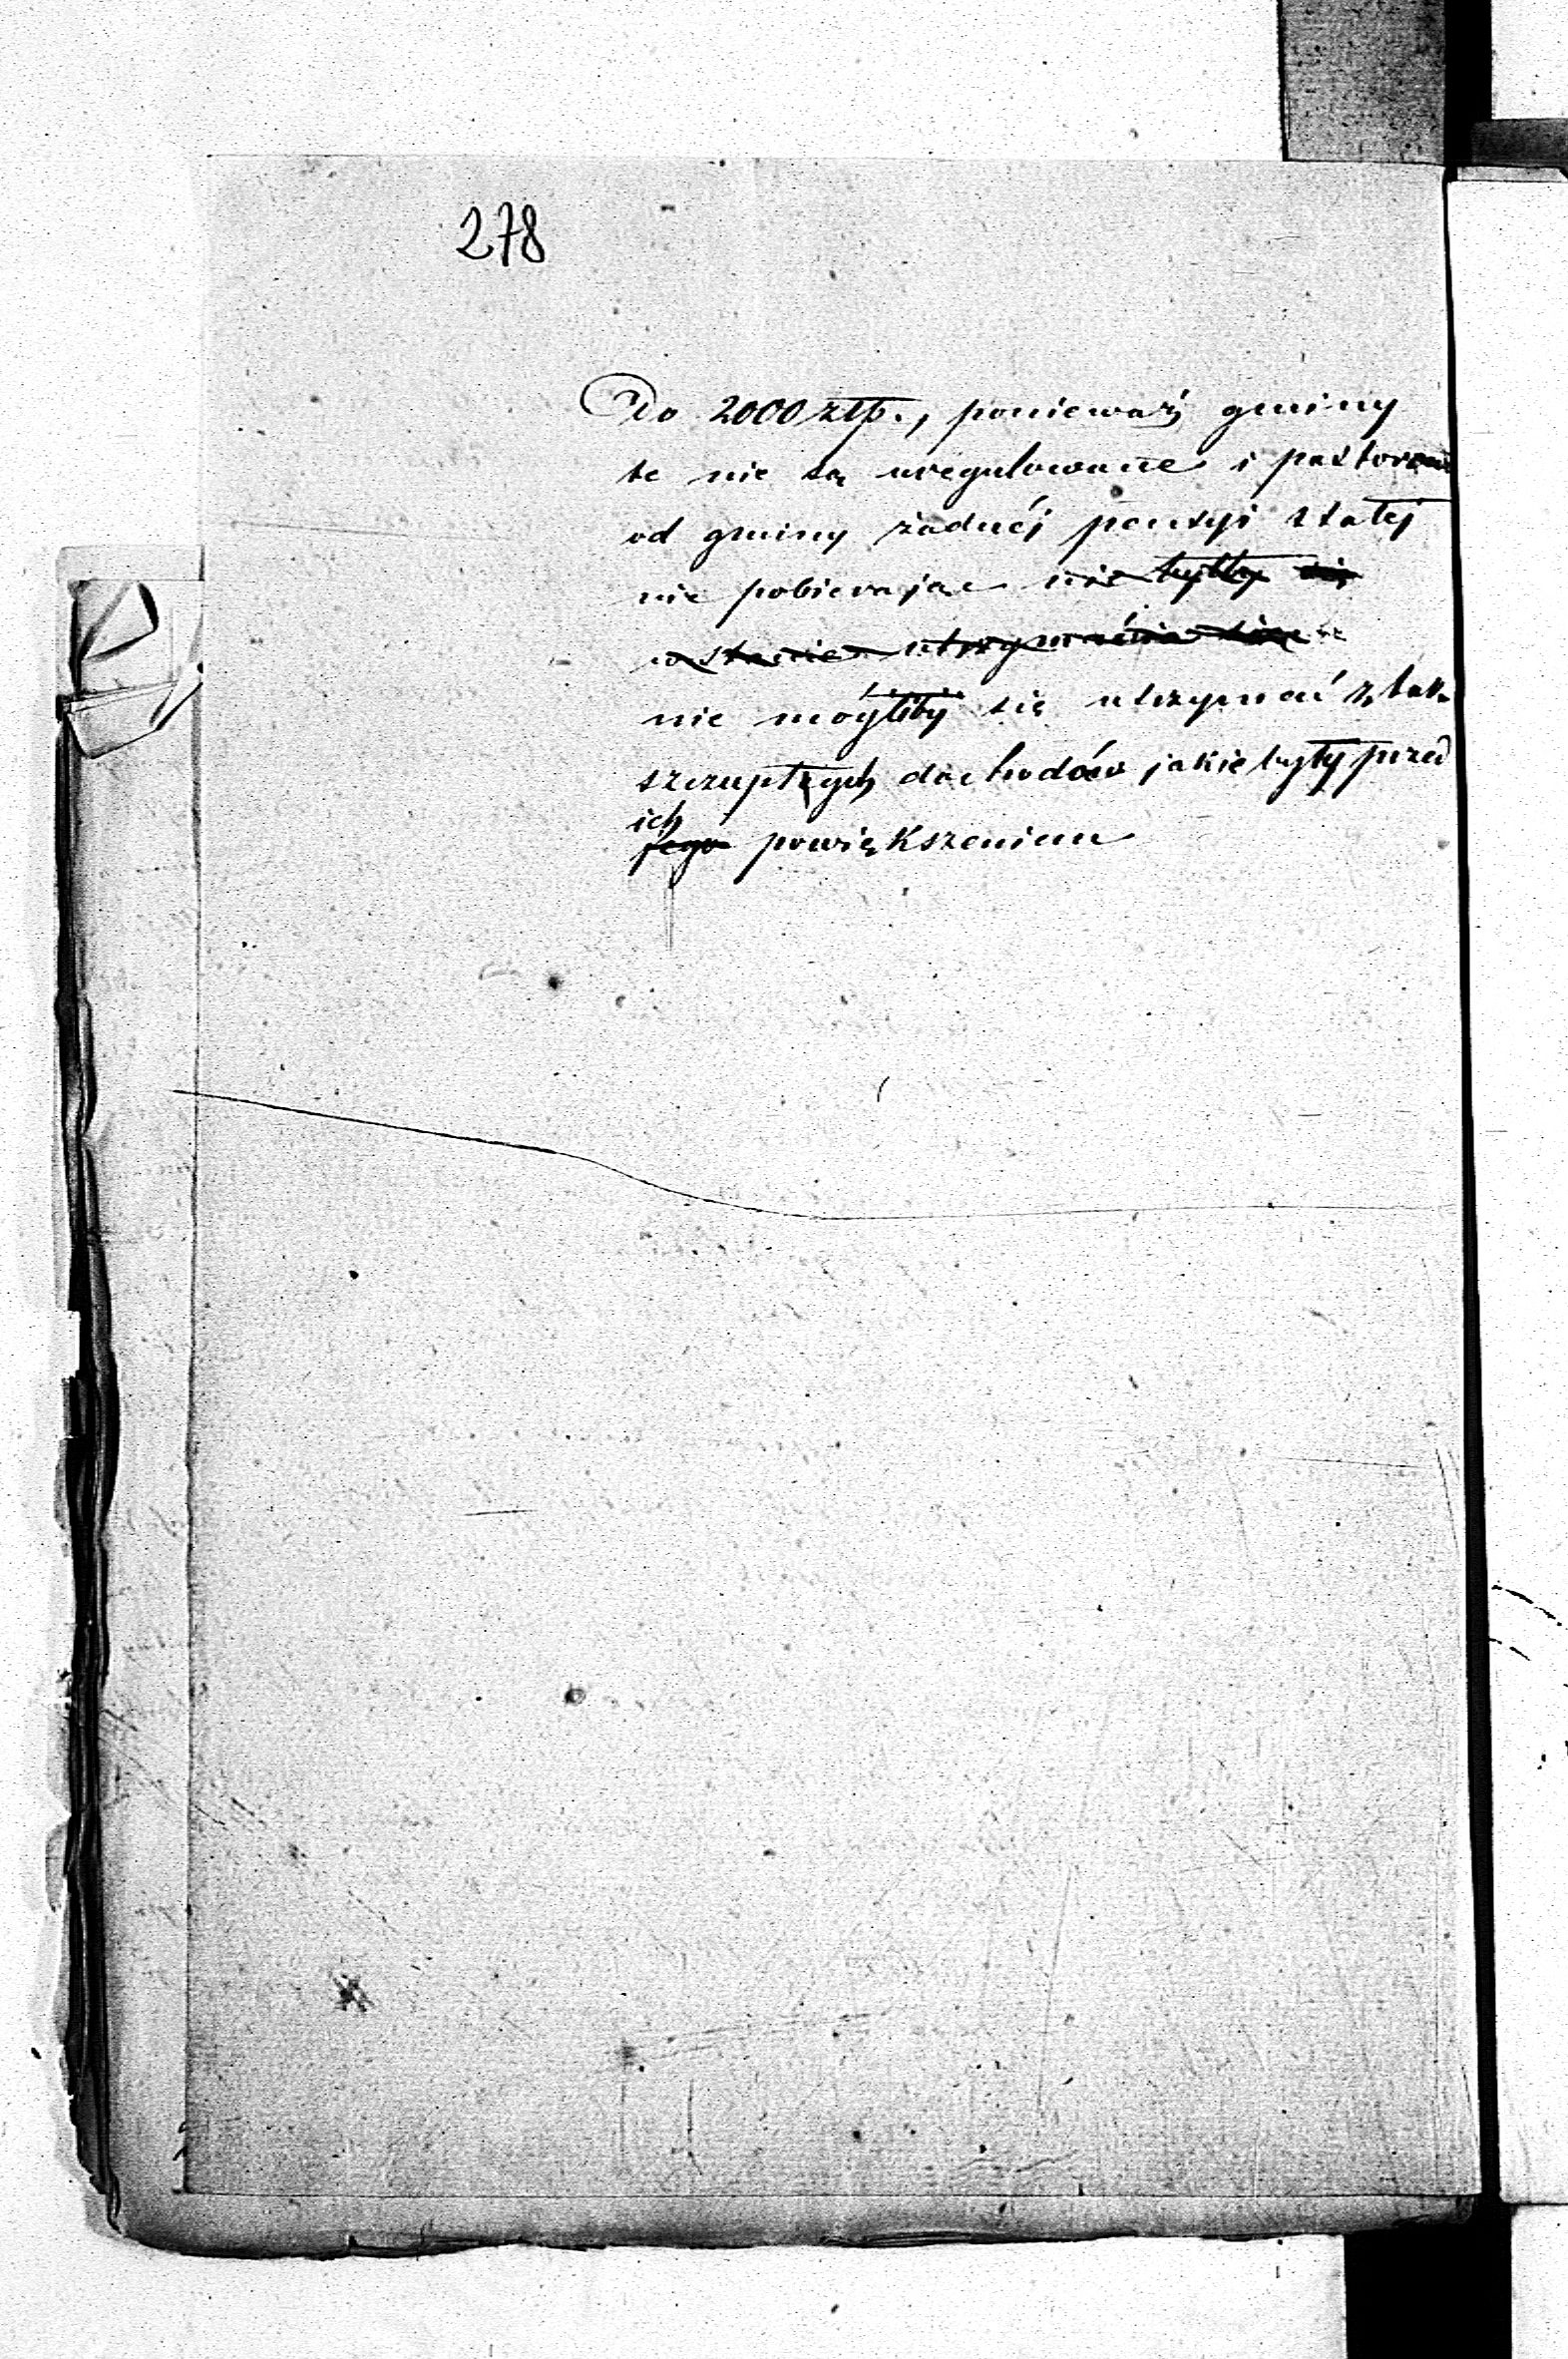 278
Do 2000 złp., ponieważ gminy
te nie są uregulowane i pastorowie
od gminy żadnéj pensyi stałej
nie pobierając nie byłby się
w stanie utrzymania się
nie mógłiby się utrzymać z tak
szczupłych dochodów jakie były przed
ich
jego powiększeniem